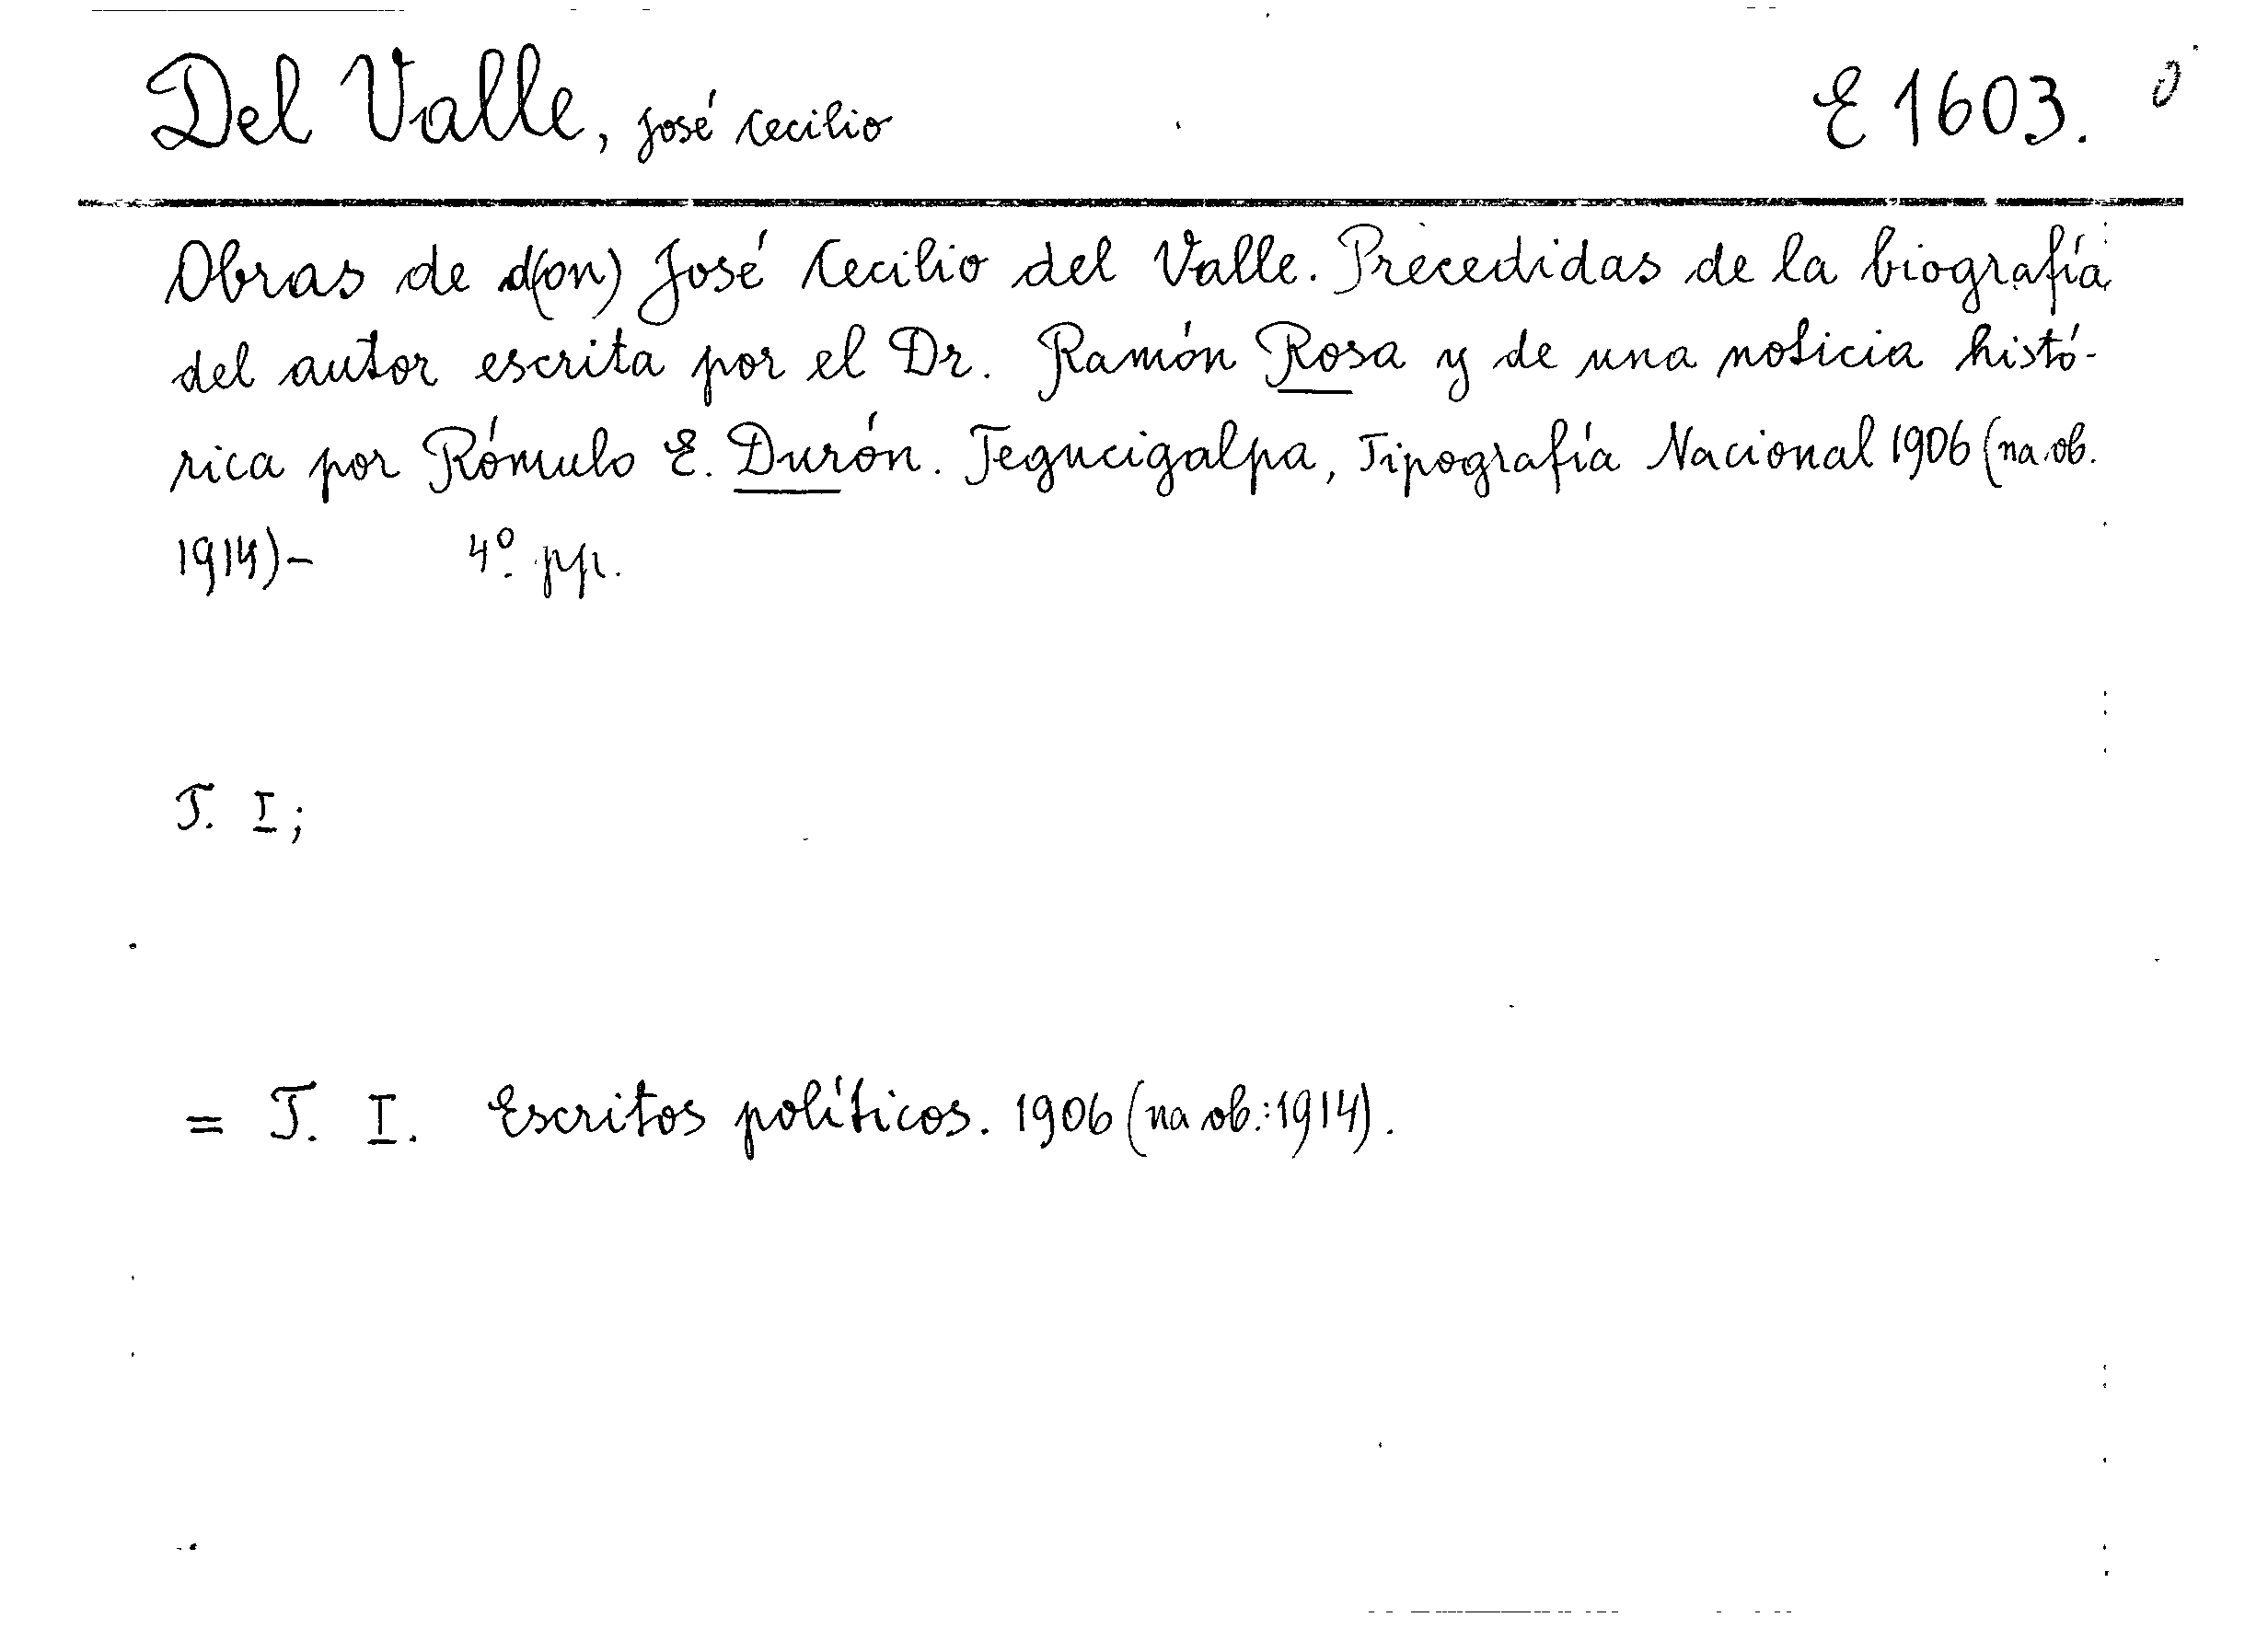 Del Valle, José Cecilio E 1603.
Obras de d(on) José Cecilio del Valle. Precedidas de la biografía
del autor escrita por el Dr. Ramón Rosa y de una noticia histó-
rica por Rómulo E. Durón. Tegucigalpa, Tipografía Nacional 1906 (na ob.
1914)- 4º pp.
T. I;
= T. I. Escritos políticos. 1906 (na ob.: 1914).